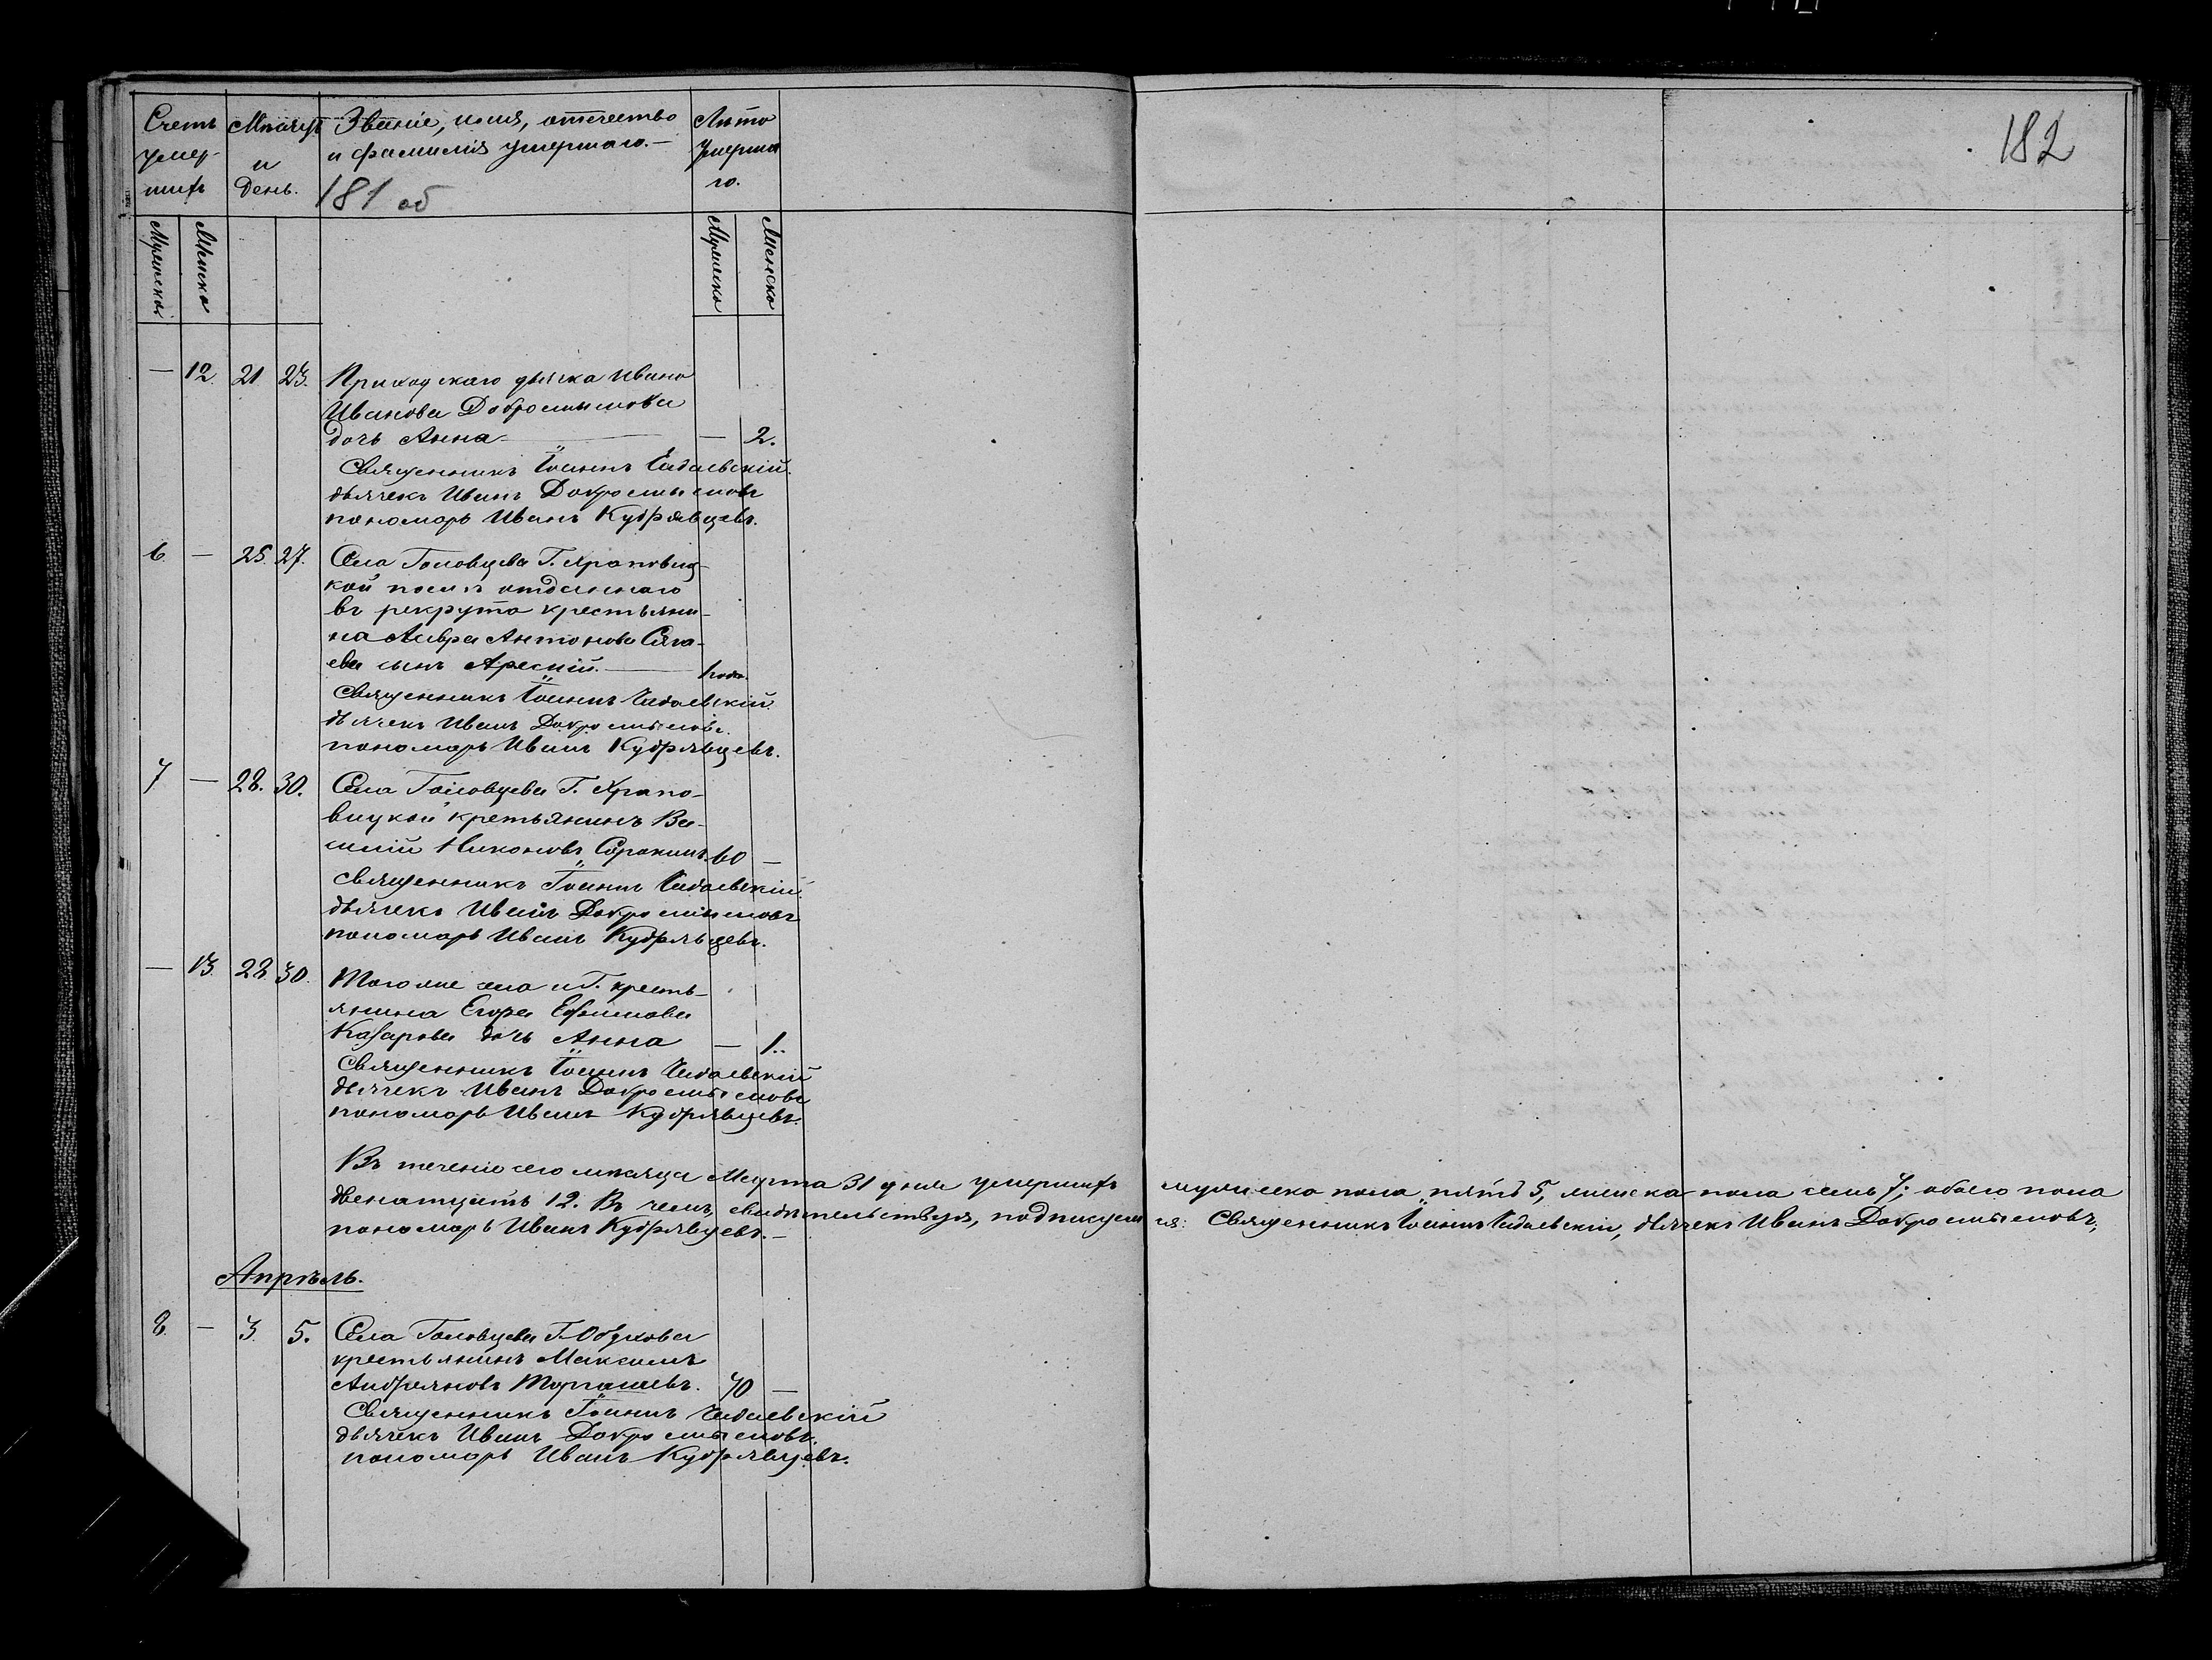 Счетъ умер-шихъ
Мѣсяцъ и день.
Званіе, имя, отчество и фамилія умершаго.
Лѣта умерша го.
181 об
182
Мужеска
Женска
Мужеска
Женска
— 12. 21 23. Приходскаго дьячка Ивана
Иванова Добросмыслова
дочь Анна — — 2.
Священникъ Іоаннъ
дьячекъ Иванъ Добросмысловъ
пономарь Иванъ Кудрявцевъ.
6. — 25. 27. Села Головцева Г. Храповиц-
кой послѣ отданнаго
въ рекруты крестьяни-
на Антонова
сынъ — 1 года.
Священникъ Іоаннъ
дьячекъ Иванъ Добросмысловъ.
пономарь Иванъ Кудрявцевъ.
7 — 28. 30. Села Головцева Г. Храпо-
вицкой кретьянинъ Ва-
силій Никоновъ Сорокинъ. 60 —
священникъ Іоаннъ
дьячекъ Иванъ Добросмысловъ
пономарь Иванъ Кудрявцевъ.
— 13. 28 30. Тогоже села и Г. кресть-
янина Егора Ефимова
Казарова дочь Анна — 1..
Священникъ Іоаннъ
дьячекъ Иванъ Добросмысловъ
пономарь Иванъ Кудрявцевъ.
Въ теченіе сего мѣсяца Марта 31 дня умершихъ мужеска пола пять 5, женска пола семь 7; обоего пола
двенатцать 12. Въ чемъ, свидѣтельствуя, подписуемся: Священникъ Іоаннъ дьячекъ Иванъ Добросмысловъ,
пономарь Иванъ Кудрявцевъ. —
Апрѣль.
8. — 3. 5. Села Головцева Г. Обухова
крестьянинъ Максимъ
Андреяновъ 70 —
Священникъ Іоаннъ
дьячекъ Иванъ Добросмысловъ.
пономарь Иванъ Кудрявцевъ.